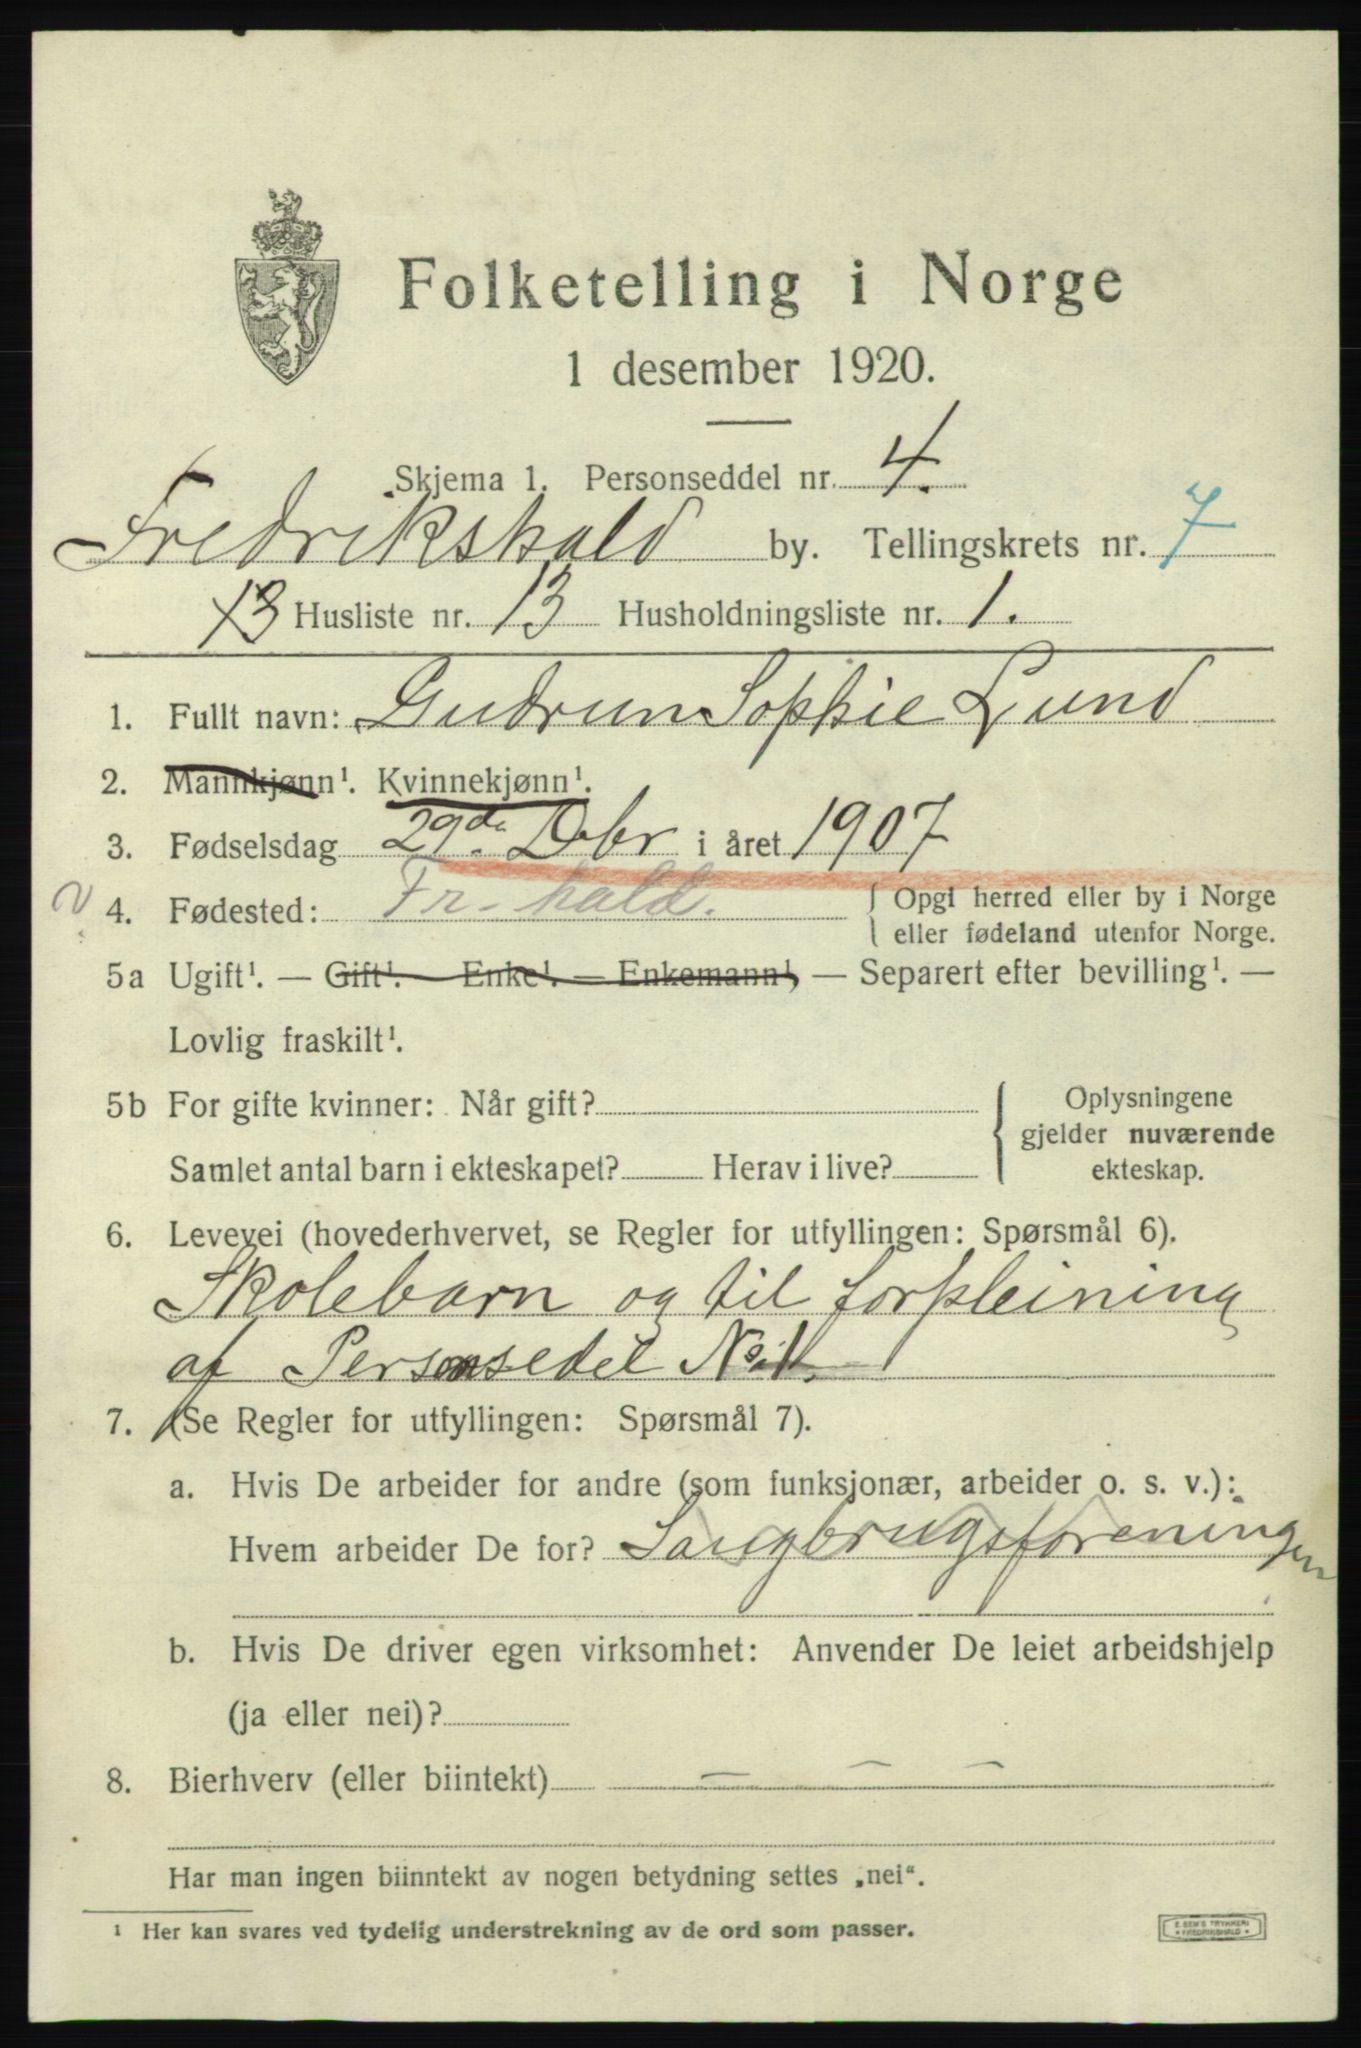 Folketelling i Norge
1 desember 1920.
Skjema 1. Personseddel nr. 4.
Fredrikshald by. Tellingskrets nr. 7
13 Husliste nr. 13 Husholdningsliste nr. 1.
1. Fullt navn: Gudrun Sophie Lund
2. Mannkjønn¹. Kvinnekjønn¹.
3. Fødselsdag 29de Dcbr i året 1907
4. Fødested: Fr-hald. Opgi herred eller by i Norge
eller fødeland utenfor Norge.
5a Ugift¹. — Gift¹. — Enke¹. — Enkemann¹, — Separert efter bevilling¹. —
Lovlig fraskilt¹.
5b For gifte kvinner: Når gift? Oplysningene
gjelder nuværende
Samlet antal barn i ekteskapet? Herav i live? ekteskap.
6. Levevei (hovederhvervet, se Regler for utfyllingen: Spørsmål 6).
Skolebarn og til forpleining
af Personsedel No. 1.
7. (Se Regler for utfyllingen: Spørsmål 7).
a. Hvis De arbeider for andre (som funksjonær, arbeider o. s. v.):
Hvem arbeider De for? Saugbrugsforeningen
b. Hvis De driver egen virksomhet: Anvender De leiet arbeidshjelp
(ja eller nei)?
8. Bierhverv (eller biintekt) — — —
Har man ingen biinntekt av nogen betydning settes „nei“.
¹ Her kan svares ved tydelig understrekning av de ord som passer.
E. SEM'S TRYKKERI
* FREDRIKSHALD *